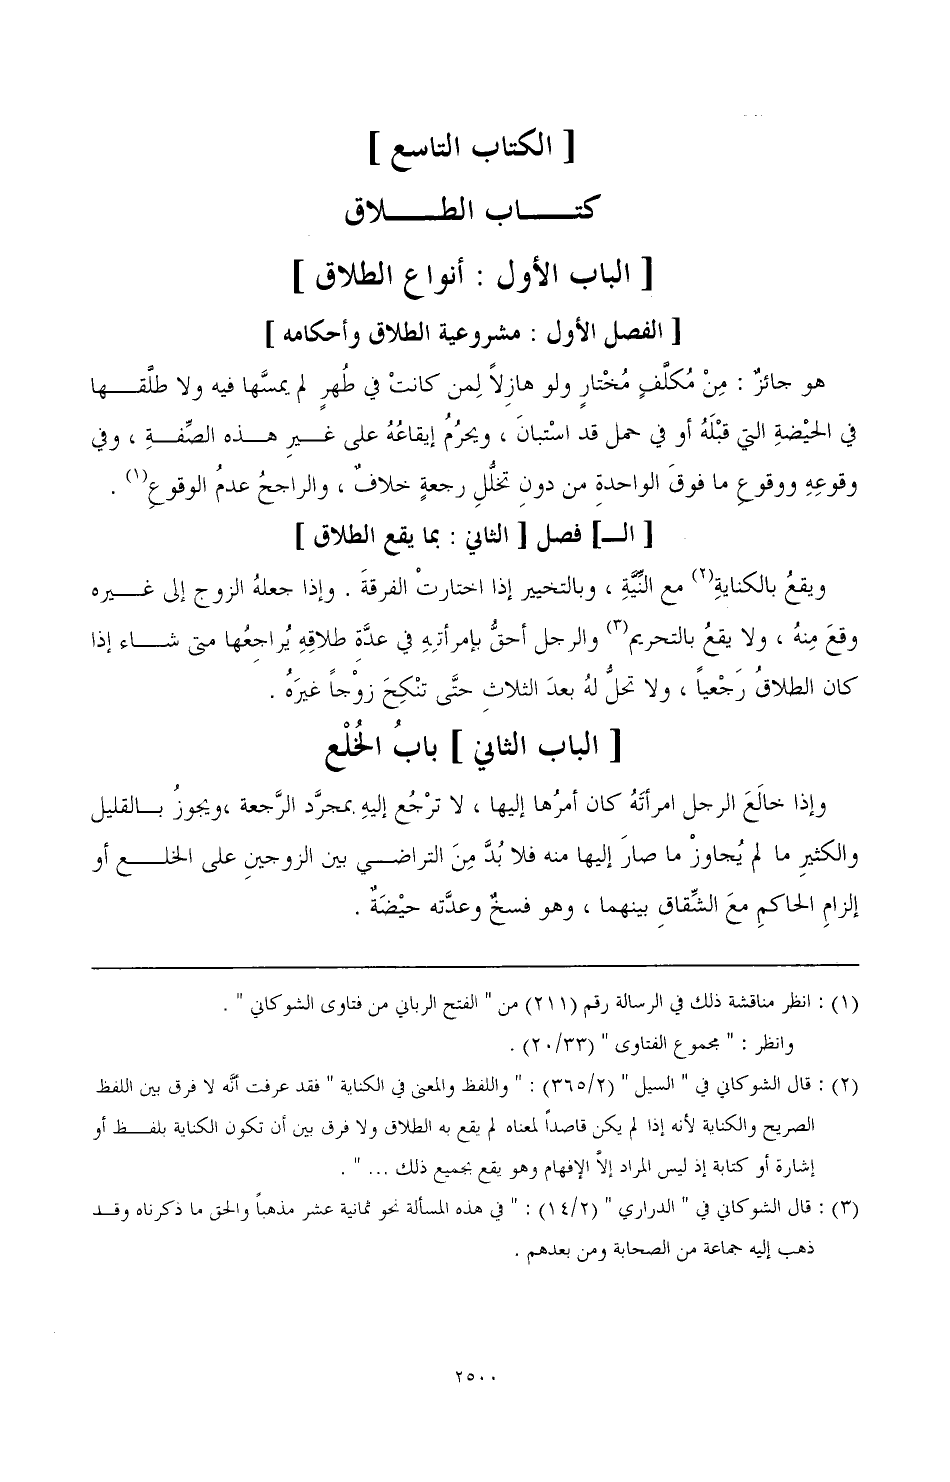 [ الكتاب التاسع ]
كتـــــاب الطـــــلاق
[ الباب الأول : أنواع الطلاق ]
[ الفصل الأول : مشروعية الطلاق وأحكامه ]
هو جائزٌ : مِنْ مُكلَّفٍ مُخْتارٍ ولو هازِلاً لِمن كانتْ في طُهرٍ لم يمسَّها فيه ولا طلَّقـــها
في الحَيْضةِ التي قبْلَهُ أو في حملٍ قد استْبانَ ، ويحرُمُ إيقاعُهُ على غـــيرِ هـــذه الصِّفـــةِ ، وفي
وقوعِهِ ووقوعِ ما فوقَ الواحدةِ من دونِ تخلُّلِ رجعةٍ خلافٌ ، والراجحُ عدمُ الوقوعِ(١) .
[ الـ] فصل [ الثاني : بما يقع الطلاق ]
ويقعُ بالكنايةِ(٢) مع النِّيَّةِ ، وبالتخييرِ إذا اختارتْ الفرقةَ . وإذا جعلهُ الزوج إلى غـــيره
وقعَ مِنهُ ، ولا يقعُ بالتحريمِ(٣) والرجل أحقُّ بإمرأتِهِ في عدَّة طلاقِهِ يُراجعُها متى شـــاء إذا
كان الطلاقُ رَجْعياً ، ولا تحلُّ لهُ بعدَ الثلاثِ حتَّى تنْكِحَ زوْجاً غيرَهُ .
[ الباب الثاني ] بابُ الخُلْعِ
وإذا خالَعَ الرجل امرأتَهُ كان أمرُها إليها ، لا ترْجُع إليهِ بمجرَّد الرَّجعة ،ويجوزُ بـــالقليل
والكثيرِ ما لم يُجاوزْ ما صارَ إليها منه فلا بُدَّ مِنَ التراضـــي بين الزوجينِ على الخلـــع أو
إلزامِ الحاكمِ معَ الشِّقاقِ بينهما ، وهو فسخٌ وعدَّته حيْضَةٌ .
(١) : انظر مناقشة ذلك في الرسالة رقم (٢١١) من " الفتح الرباني من فتاوى الشوكاني " .
وانظر : " مجموع الفتاوى " (٢٠/٣٣) .
(٢) : قال الشوكاني في " السيل " (٣٦٥/٢) : " واللفظ والمعنى في الكناية " فقد عرفت أنَّه لا فرق بين اللفظ
الصريح والكناية لأنه إذا لم يكن قاصداً لمعناه لم يقع به الطلاق ولا فرق بين أن تكون الكناية بلفـــظ أو
إشارة أو كتابة إذ ليس المراد إلاَّ الإفهام وهو يقع بجميع ذلك ... " .
(٣) : قال الشوكاني في " الدراري " (١٤/٢) : " في هذه المسألة نحو ثمانية عشر مذهباً والحق ما ذكرناه وقـــد
ذهب إليه جماعة من الصحابة ومن بعدهم .
٢٥٠٠